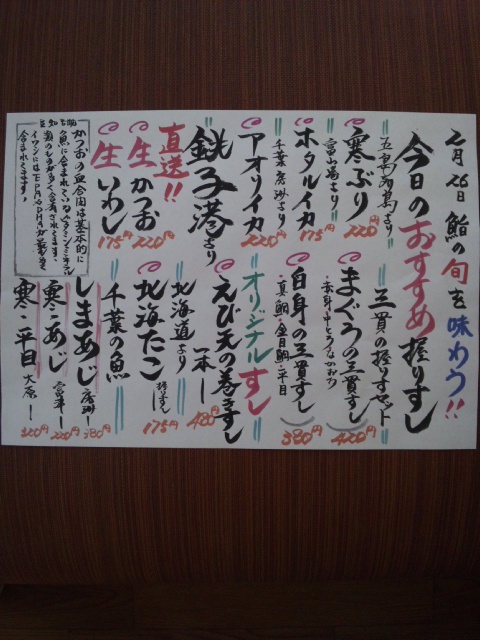 2月26日 鮨の旬を味わう!!
今日のおすすめ握りすし
五島列島より
寒ぶり 220円
富山湾より
ホタルイカ 175円
千葉房州より
アオリイカ 220円
銚子港より
直送!!
生かつお 220円
生いわし 175円
豆知識
かつおの血合肉は基本的に
魚に含まれているビタミンミネラル
類のものが多く含有されてます。
イワシにはEPAやDHAが豊富で
含まれてます!
三貫の握りすしセット
まぐろの三貫すし 420円
・赤身・中とろ・なかおち
白身の三貫すし 380円
・真鯛・金目鯛・平目
オリジナルすし
えび天の巻きすし
一本 480円
北海道より
北海たこ 握りすし 175円
千葉の魚
しまあじ 房州 380円
寒あじ 富津 220円
寒平目 大原 320円